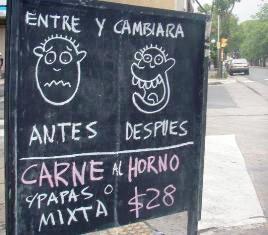 ENTRE Y CAMBIARA
ANTES DESPUES
CARNE AL HORNO
C/PAPAS O
MIXTA $28